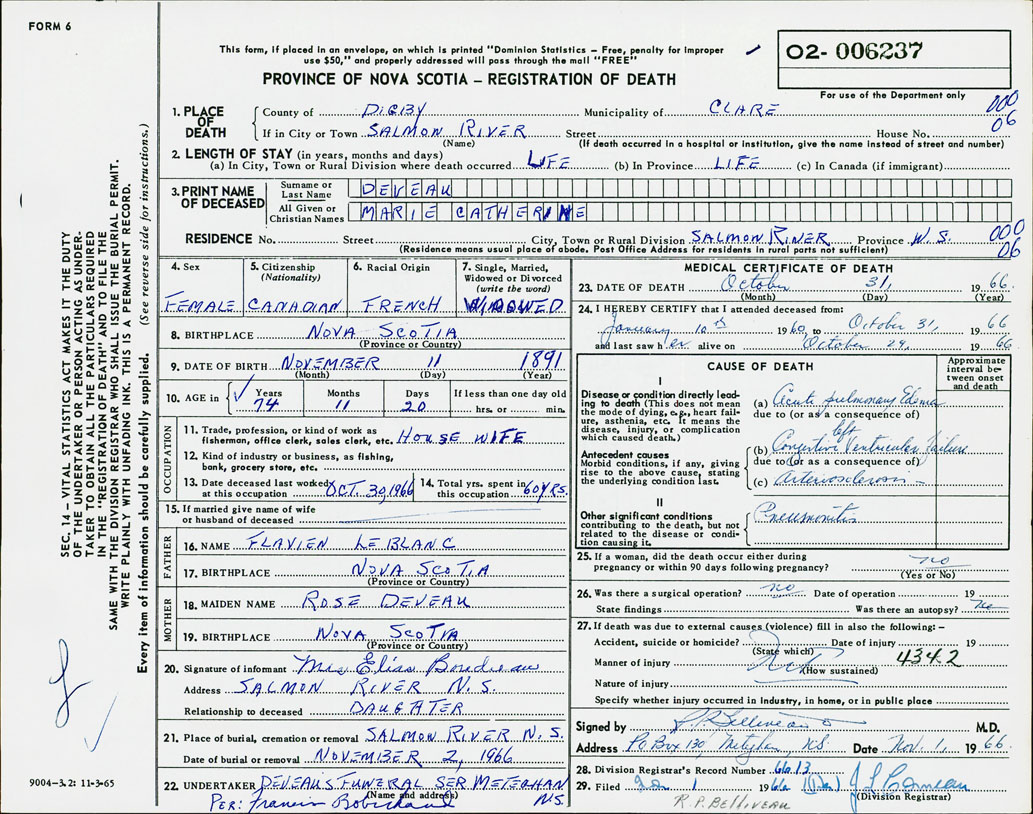 FORM 6
This form, if placed in an envelope, on which is printed "Dominion Statistics – Free, penalty for improper
use $50," and properly addressed will pass through the mail "FREE"
PROVINCE OF NOVA SCOTIA – REGISTRATION OF DEATH
02- 006237
For use of the Department only
1. PLACE OF DEATH County of DIGBY Municipality of CLARE 000
If in City or Town SALMON RIVER Street House No. 06
(Name) (If death occurred in a hospital or institution, give the name instead of street and number)
2. LENGTH OF STAY (in years, months and days)
(a) In City, Town or Rural Division where death occurred LIFE (b) In Province LIFE (c) In Canada (if immigrant)
3. PRINT NAME OF DECEASED Surname or Last Name DEVEAU
All Given or Christian Names MARIE CATHERINE
RESIDENCE No. Street City, Town or Rural Division SALMON RIVER Province N.S. 000
(Residence means usual place of abode. Post Office Address for residents in rural parts not sufficient) 06
4. Sex
FEMALE
5. Citizenship
(Nationality)
CANADIAN
6. Racial Origin
FRENCH
7. Single, Married,
Widowed or Divorced
(write the word)
WIDOWED
8. BIRTHPLACE NOVA SCOTIA
(Province or Country)
9. DATE OF BIRTH NOVEMBER 11 1891
(Month) (Day) (Year)
10. AGE in Years Months Days If less than one day old
74 11 20 hrs. or min.
OCCUPATION
11. Trade, profession, or kind of work as
fisherman, office clerk, sales clerk, etc. HOUSE WIFE
12. Kind of industry or business, as fishing,
bank, grocery store, etc.
13. Date deceased last worked
at this occupation OCT. 30, 1966
14. Total yrs. spent in
this occupation 60 YRS.
15. If married give name of wife
or husband of deceased
FATHER
16. NAME FLAVIEN LEBLANC
17. BIRTHPLACE NOVA SCOTIA
(Province or Country)
MOTHER
18. MAIDEN NAME ROSE DEVEAU
19. BIRTHPLACE NOVA SCOTIA
(Province or Country)
20. Signature of informant Mrs Elias Boudreau
Address SALMON RIVER N.S.
Relationship to deceased DAUGHTER
21. Place of burial, cremation or removal SALMON RIVER N.S.
Date of burial or removal NOVEMBER 2, 1966
22. UNDERTAKER DEVEAU'S FUNERAL SER METEGHAN
(Name and address) N.S.
PER: Francis Robichaud
MEDICAL CERTIFICATE OF DEATH
23. DATE OF DEATH October 31, 1966
(Month) (Day) (Year)
24. I HEREBY CERTIFY that I attended deceased from:
January 10th 1960, to October 31, 1966
and last saw h er alive on October 29, 1966
CAUSE OF DEATH
Approximate
interval be-
tween onset
and death
I
Disease or condition directly lead-
ing to death (This does not mean
the mode of dying, e.g., heart fail-
ure, asthenia, etc. It means the
disease, injury, or complication
which caused death.)
Antecedent causes
Morbid conditions, if any, giving
rise to the above cause, stating
the underlying condition last.
(a) Acute pulmonary Edema
due to (or as a consequence of)
left
(b) Congestive Ventricular Failure
due to (or as a consequence of)
(c) Arteriosclerosis
II
Other significant conditions
contributing to the death, but not
related to the disease or condi-
tion causing it.
Pneumonitis
25. If a woman, did the death occur either during
pregnancy or within 90 days following pregnancy? no
(Yes or No)
26. Was there a surgical operation? no Date of operation 19
State findings Was there an autopsy? no
27. If death was due to external causes (violence) fill in also the following: –
Accident, suicide or homicide? Date of injury 19
(State which)
Manner of injury 4342
(How sustained)
Nature of injury
Specify whether injury occurred in industry, in home, or in public place
Signed by R.P. Belliveau M.D.
Address PO Box 130, Meteghan, N.S. Date Nov. 1, 1966
28. Division Registrar's Record Number 6613
29. Filed 1 1966
(Division Registrar)
R.P. BELLIVEAU
SEC. 14 – VITAL STATISTICS ACT MAKES IT THE DUTY
OF THE UNDERTAKER OR PERSON ACTING AS UNDER-
TAKER TO OBTAIN ALL THE PARTICULARS REQUIRED
IN THE "REGISTRATION OF DEATH" AND TO FILE THE
SAME WITH THE DIVISION REGISTRAR WHO SHALL ISSUE THE BURIAL PERMIT.
WRITE PLAINLY WITH UNFADING INK. THIS IS A PERMANENT RECORD.
Every item of information should be carefully supplied. (See reverse side for instructions.)
9004-3.2: 11-3-65